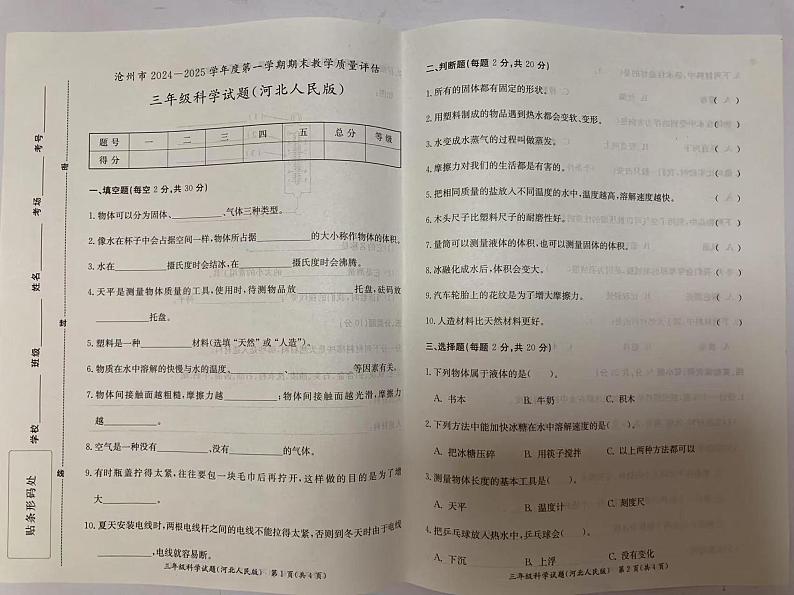 沧州市 2024—2025 学年度第一学期期末教学质量评估
三年级科学试题(河北人民版)
题号 一 二 三 四 五 总分 等级
得分
一、填空题(每空 2 分,共 30 分)
1. 物体可以分为固体、________、气体三种类型。
2. 像水在杯子中会占据空间一样,物体所占据________的大小称作物体的体积。
3. 水在________摄氏度时会结冰,在________摄氏度时会沸腾。
4. 天平是测量物体质量的工具,使用时,待测物品放________托盘,砝码放
________托盘。
5. 塑料是一种________材料(选填“天然”或“人造”)。
6. 物质在水中溶解的快慢与水的温度、________、________等因素有关。
7. 物体间接触面越粗糙,摩擦力越________;物体间接触面越光滑,摩擦力
越________。
8. 空气是一种没有________、没有________的气体。
9. 有时瓶盖拧得太紧,往往要包一块毛巾后再拧开,这样做的目的是为了增
大________。
10. 夏天安装电线时,两根电线杆之间的电线不能拉得太紧,否则到冬天时由于电线
________,电线就容易断。
三年级科学试题(河北人民版) 第 1 页(共 4 页)
学校________ 班级________ 姓名________ 考场________ 考号________
贴条形码处
二、判断题(每题 2 分,共 20 分)
1. 所有的固体都有固定的形状。( )
2. 用塑料制成的物品遇到热水都会变软、变形。( )
3. 水变成水蒸气的过程叫做蒸发。( )
4. 摩擦力对我们的生活都是有害的。( )
5. 把相同质量的盐放入不同温度的水中,温度越高,溶解速度越快。( )
6. 木头尺子比塑料尺子的耐磨性好。( )
7. 量筒可以测量液体的体积,也可以测量固体的体积。( )
8. 冰融化成水后,体积会变大。( )
9. 汽车轮胎上的花纹是为了增大摩擦力。( )
10. 人造材料比天然材料更好。( )
三、选择题(每题 2 分,共 20 分)
1. 下列物体属于液体的是( )。
A. 书本 B. 牛奶 C. 积木
2. 下列方法中能加快冰糖在水中溶解速度的是( )。
A. 把冰糖压碎 B. 用筷子搅拌 C. 以上两种方法都可以
3. 测量物体长度的基本工具是( )。
A. 天平 B. 温度计 C. 刻度尺
4. 把乒乓球放入热水中,乒乓球会( )。
A. 下沉 B. 上浮 C. 没有变化
三年级科学试题(河北人民版) 第 2 页(共 4 页)